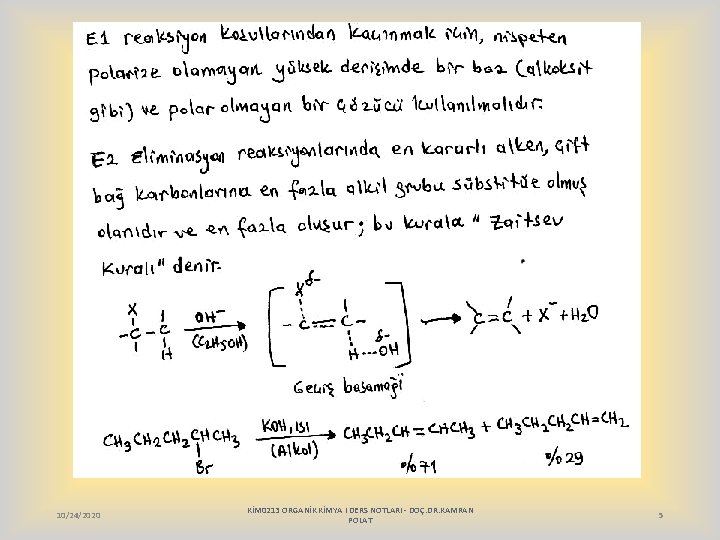 E1 reaksiyon koşullarından kaçınmak için, nispeten
polarize olamayan yüksek derişimde bir baz (alkoksit
gibi) ve polar olmayan bir çözücü kullanılmalıdır.
E2 Eliminasyon reaksiyonlarında en kararlı alken, çift
bağ karbonlarına en fazla alkil grubu sübstitüe olmuş
olanıdır ve en fazla oluşur; bu kurala " Zaitsev
Kuralı" denir.
X OH⁻ Xδ- 
-C-C- (C2H5OH) -C=C- C=C + X⁻ + H2O
H δ- H---OH
Geçiş basamağı
CH3CH2CH2CHCH3 KOH, ısı CH3CH2CH=CHCH3 + CH3CH2CH2CH=CH2
Br (Alkol) %71 %29
10/24/2020
KİM0213 ORGANİK KİMYA I DERS NOTLARI - DOÇ.DR.KAMRAN
POLAT
5